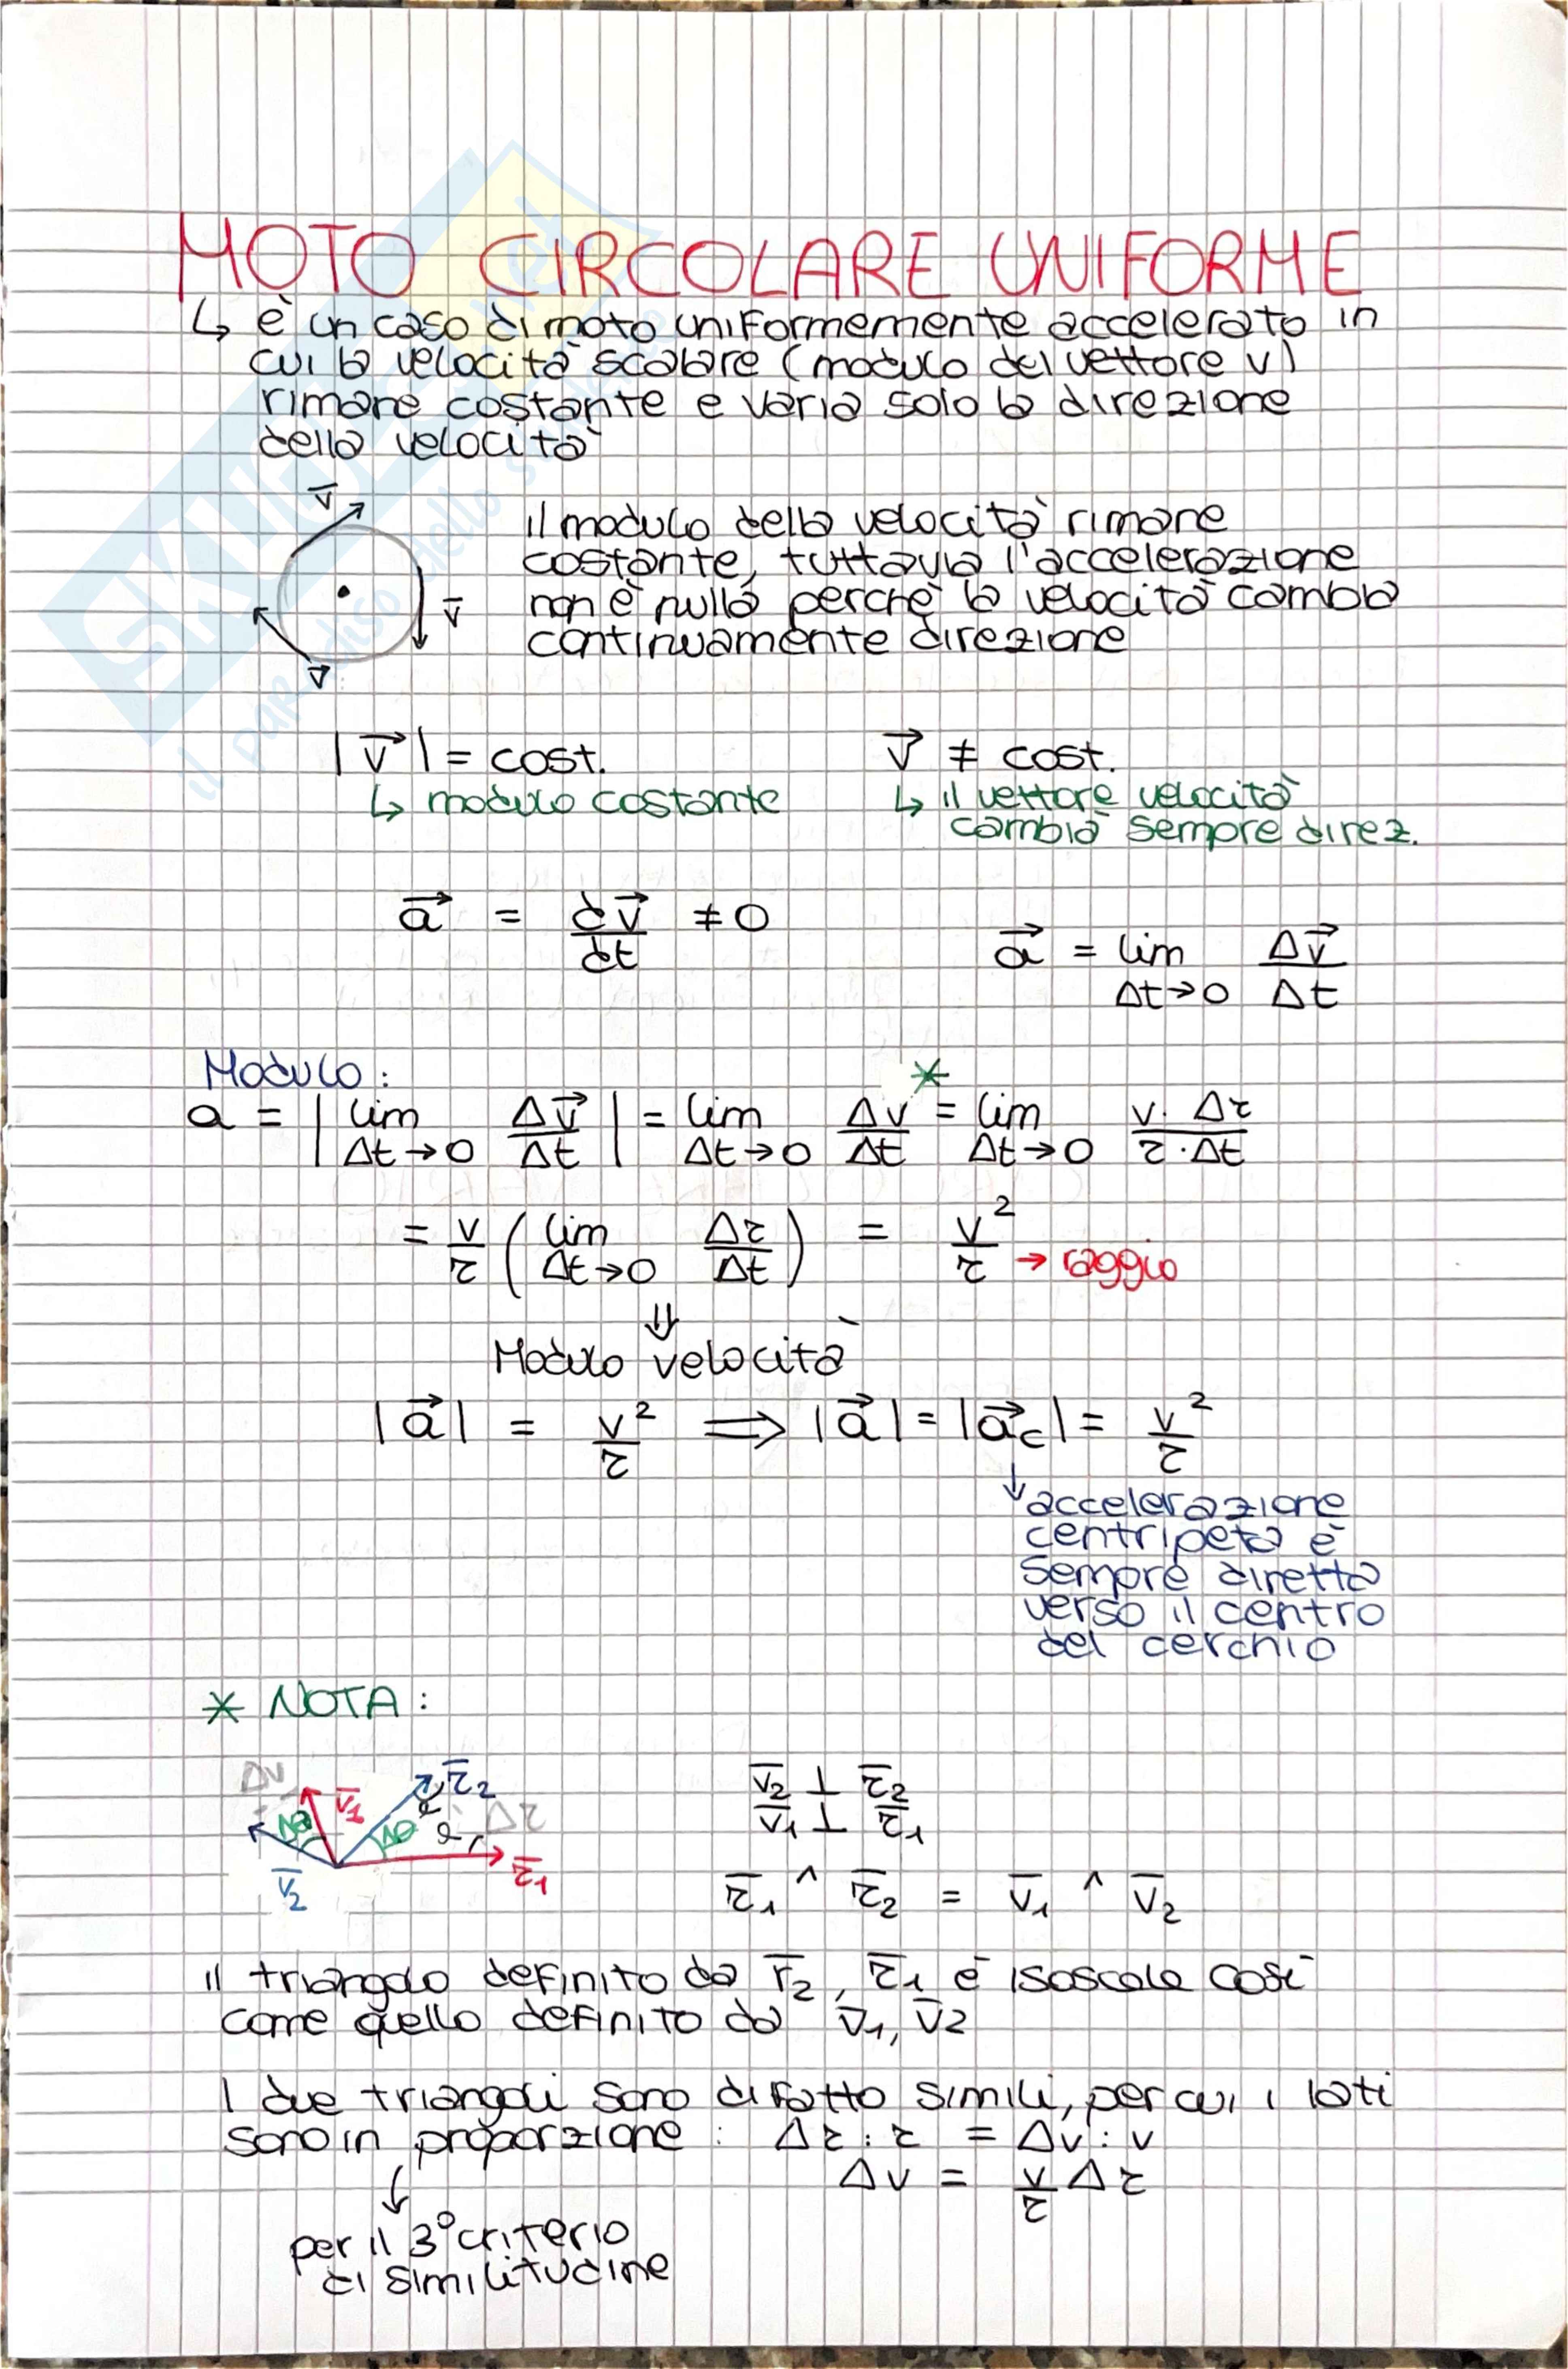 MOTO CIRCOLARE UNIFORME
↳ è un caso di moto uniformemente accelerato in
cui la velocità scalare (modulo del vettore v)
rimane costante e varia solo la direzione
della velocità
v̅
il modulo della velocità rimane
costante, tuttavia l'accelerazione
non è nulla perchè la velocità cambia
continuamente direzione
v̅
v̅
|v⃗| = cost. v⃗ ≠ cost.
↳ modulo costante ↳ il vettore velocità
cambia sempre direz.
a⃗ = dv⃗/dt ≠ 0
a⃗ = lim Δt→0 Δv⃗/Δt
Modulo:
*
a = | lim Δt→0 Δv⃗/Δt | = lim Δt→0 Δv/Δt = lim Δt→0 v·Δr/r·Δt
= v/r ( lim Δt→0 Δr/Δt ) = v²/r → raggio
⇓
Modulo velocità
|a⃗| = v²/r ⟹ |a⃗| = |a⃗c| = v²/r
↓ accelerazione
centripeta è
sempre diretta
verso il centro
del cerchio
* NOTA:
Δv v̅1 r̅2
Δθ Δθ α α Δr
v̅2 r̅1
v̅2 ⊥ r̅2
v̅1 ⊥ r̅1
r̅1 ^ r̅2 = v̅1 ^ v̅2
il triangolo definito da r̅2, r̅1 è isoscele così
come quello definito da v̅1, v̅2
I due triangoli sono di fatto simili, per cui i lati
sono in proporzione: Δr : r = Δv : v
Δv = v/r Δr
↓
per il 3° criterio
di similitudine
SKUOLA.net
il paradiso dello studente